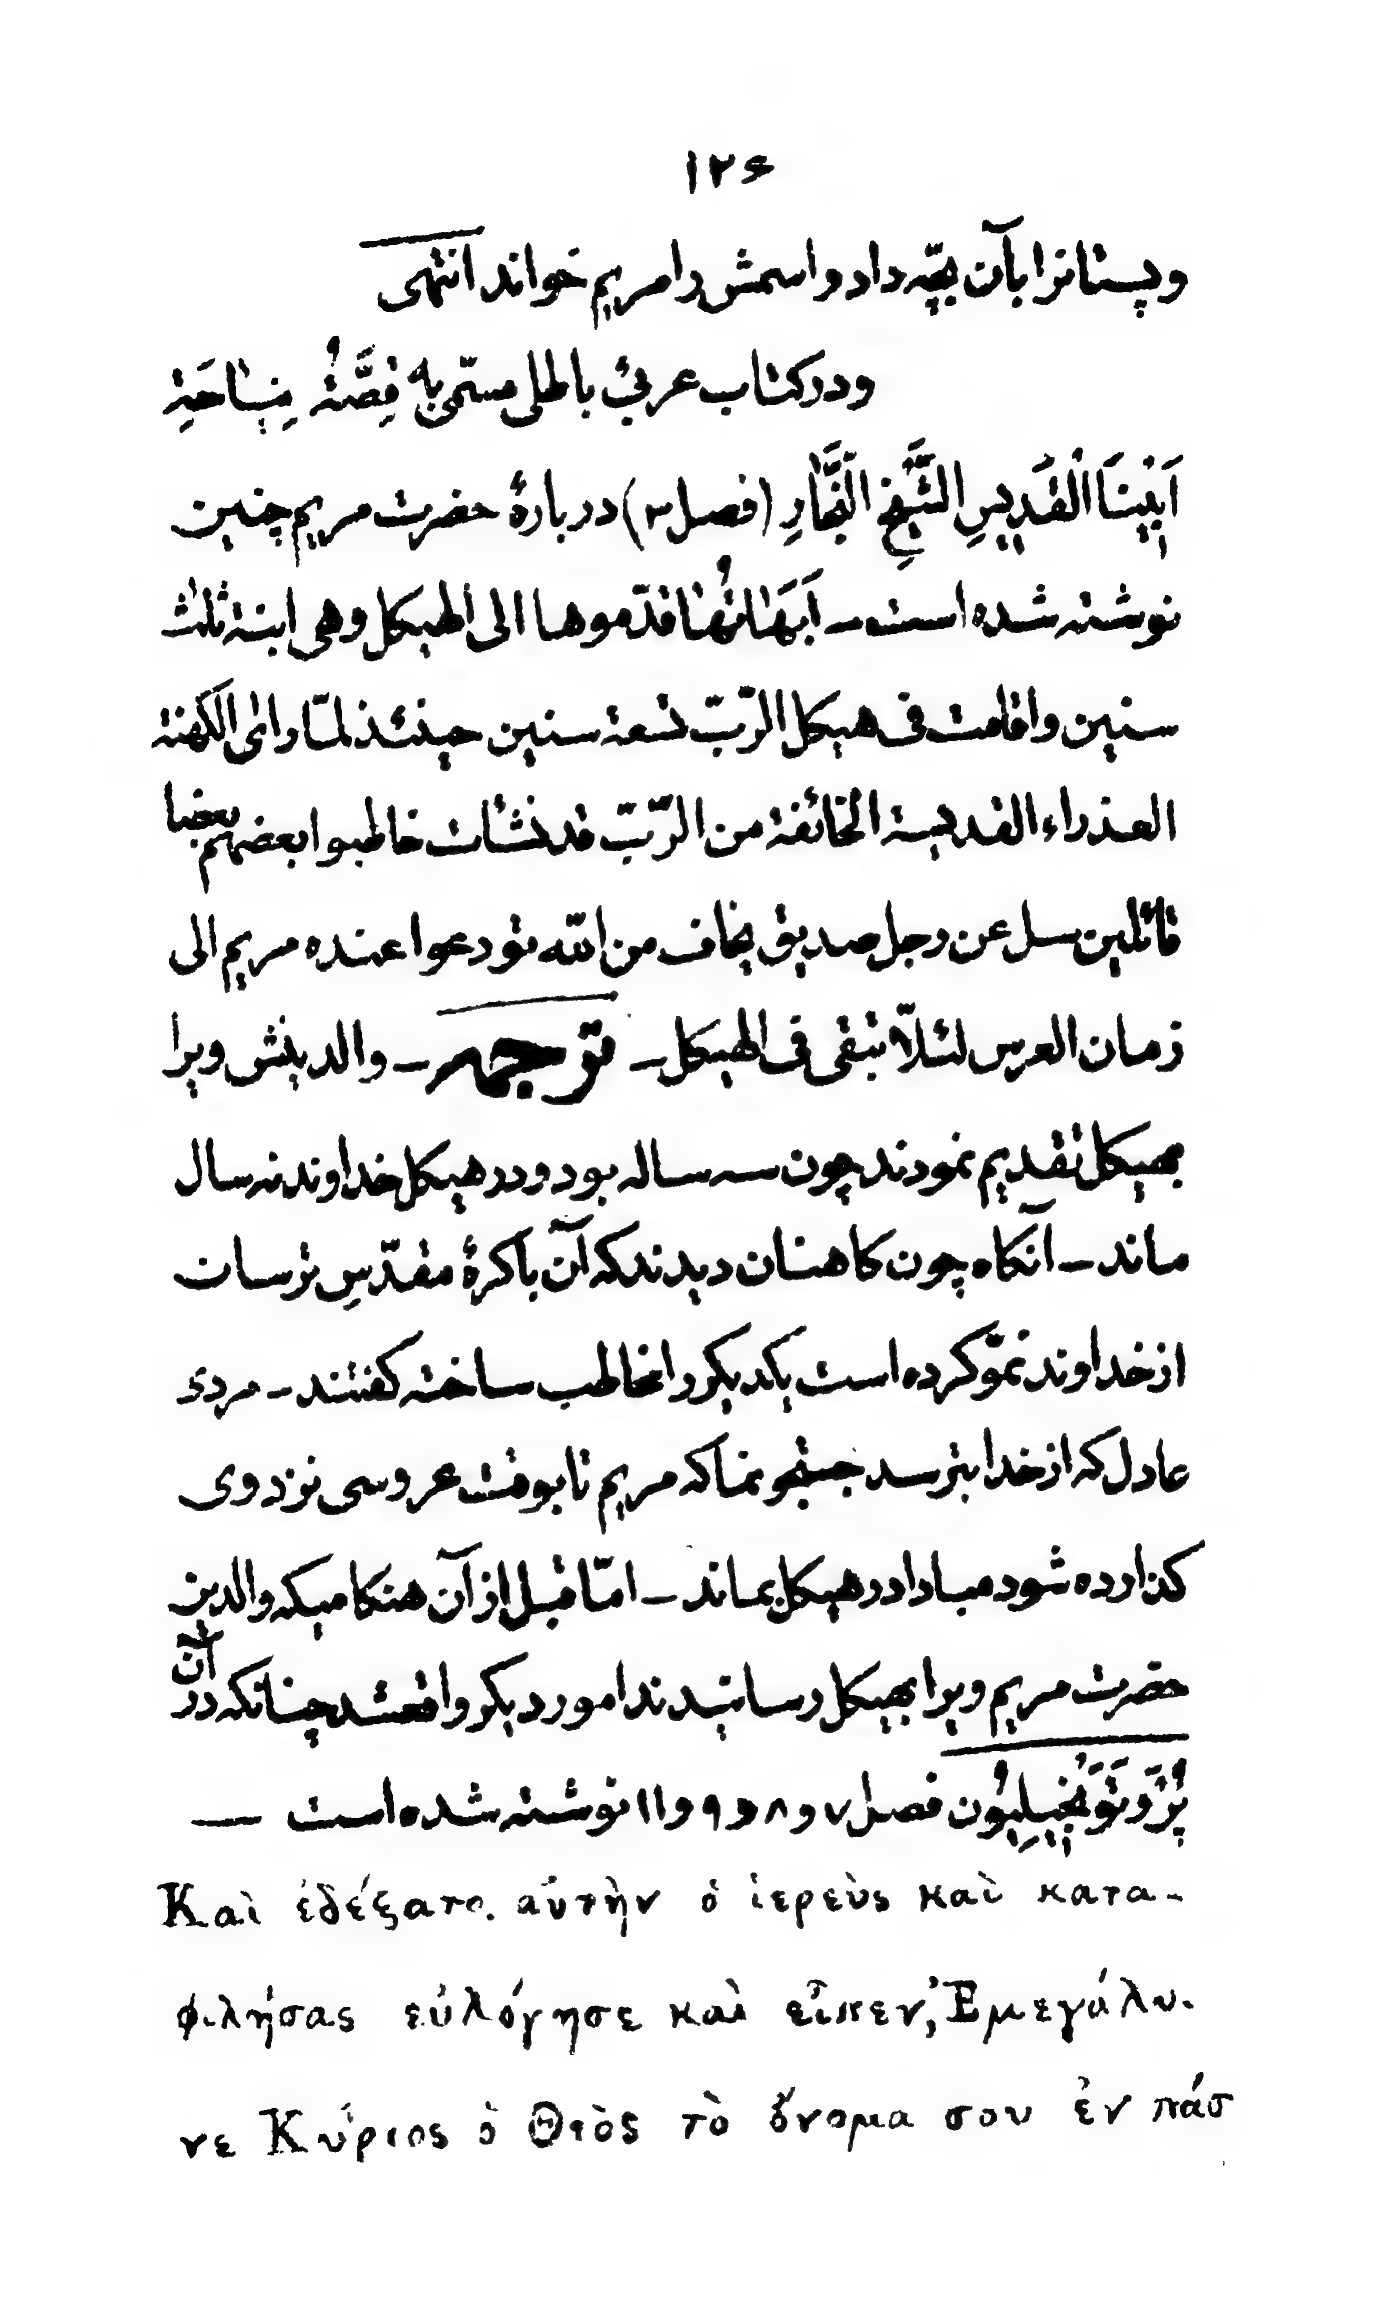 ۱۲۶
و پستانرا بآن بچّه داد و اسمش را مریم خواند انتهی
و در کتاب عربیّ باطلی مسمّی به قِصَّةُ نِیَاحَةِ
اَبِینَا الْقَدِیسِ الشَّیْخِ النَّجَّارِ (فصل ۳) در بارهٔ حضرت مریم چنین
نوشته شده است ــ اَبَهَاتُهَا قدّموها الی الهیکل وهی ابنة ثلث
سنین واقامت فی هیکل الرّبّ تسعة سنین حینئذ لمّا رأی الکهنة
العذراء القدیسة الخائفة من الرّبّ قد نشأت خاطبوا بعضهم بعضا
قائلین سل عن رجل صدیق یخاف من اللّه تودعوا عنده مریم الی
زمان العرس لئلّا تبقی فی الهیکل ــ ترجمه ــ والدینش ویرا
بهیکل تقدیم نمودند چون سه ساله بود و در هیکل خداوند نه سال
ماند ــ آنکاه چون کاهنان دیدند که آن باکرهٔ مقدّسِ ترسان
از خداوند نموّ کرده است یکدیکر را مخاطب ساخته کفتند ــ مردی
عادل که از خدا بترسد جستجو نما که مریم تا بوقت عروسی نزد وی
کذارده شود مبادا در هیکل بماند ــ امّا قبل از آن هنکامیکه والدین
حضرت مریم ویرا بهیکل رسانیدند امور دیکر واقعشد چنانکه در آن
پْرُوتَوَنْجِیلِیُون فصل ۷ و ۸ و ۹ و ۱۱ نوشته شده است ــــ
Καὶ ἐδέξατο αὐτὴν ὁ ἱερεὺς καὶ κατα-
φιλήσας εὐλόγησε καὶ εἶπεν, Ἐμεγάλυ-
νε Κύριος ὁ Θεὸς τὸ ὄνομα σου ἐν πάσ